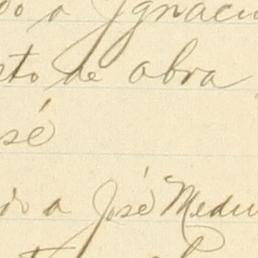 do a Ignacio
sto de obra
sé
do a José Medi